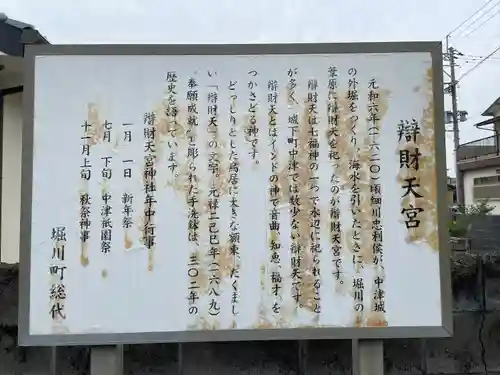 辯財天宮
元和六年(一六二〇)頃細川忠利侯が、中津城
の外堀をつくり、海水を引いたときに、堀川の
葦原に辯財天を祀ったのが辯財天宮です。
辯財天は七福神の一つで水辺に祀られること
が多く、城下町中津では数少ない辯財天です。
辯財天とはインドの神で音曲、知恵、福才を
つかさどる神です。
どっしりとした鳥居に大きな額束、たくまし
い「辯財天」の文字、元禄二己巳年(一六八九)
奉願成就、と彫られた手洗鉢は、三〇二年の
歴史を語っています。
辯財天宮神社年中行事
一月一日 新年祭
七月下旬 中津祇園祭
十二月上旬 秋祭神事
堀川町総代